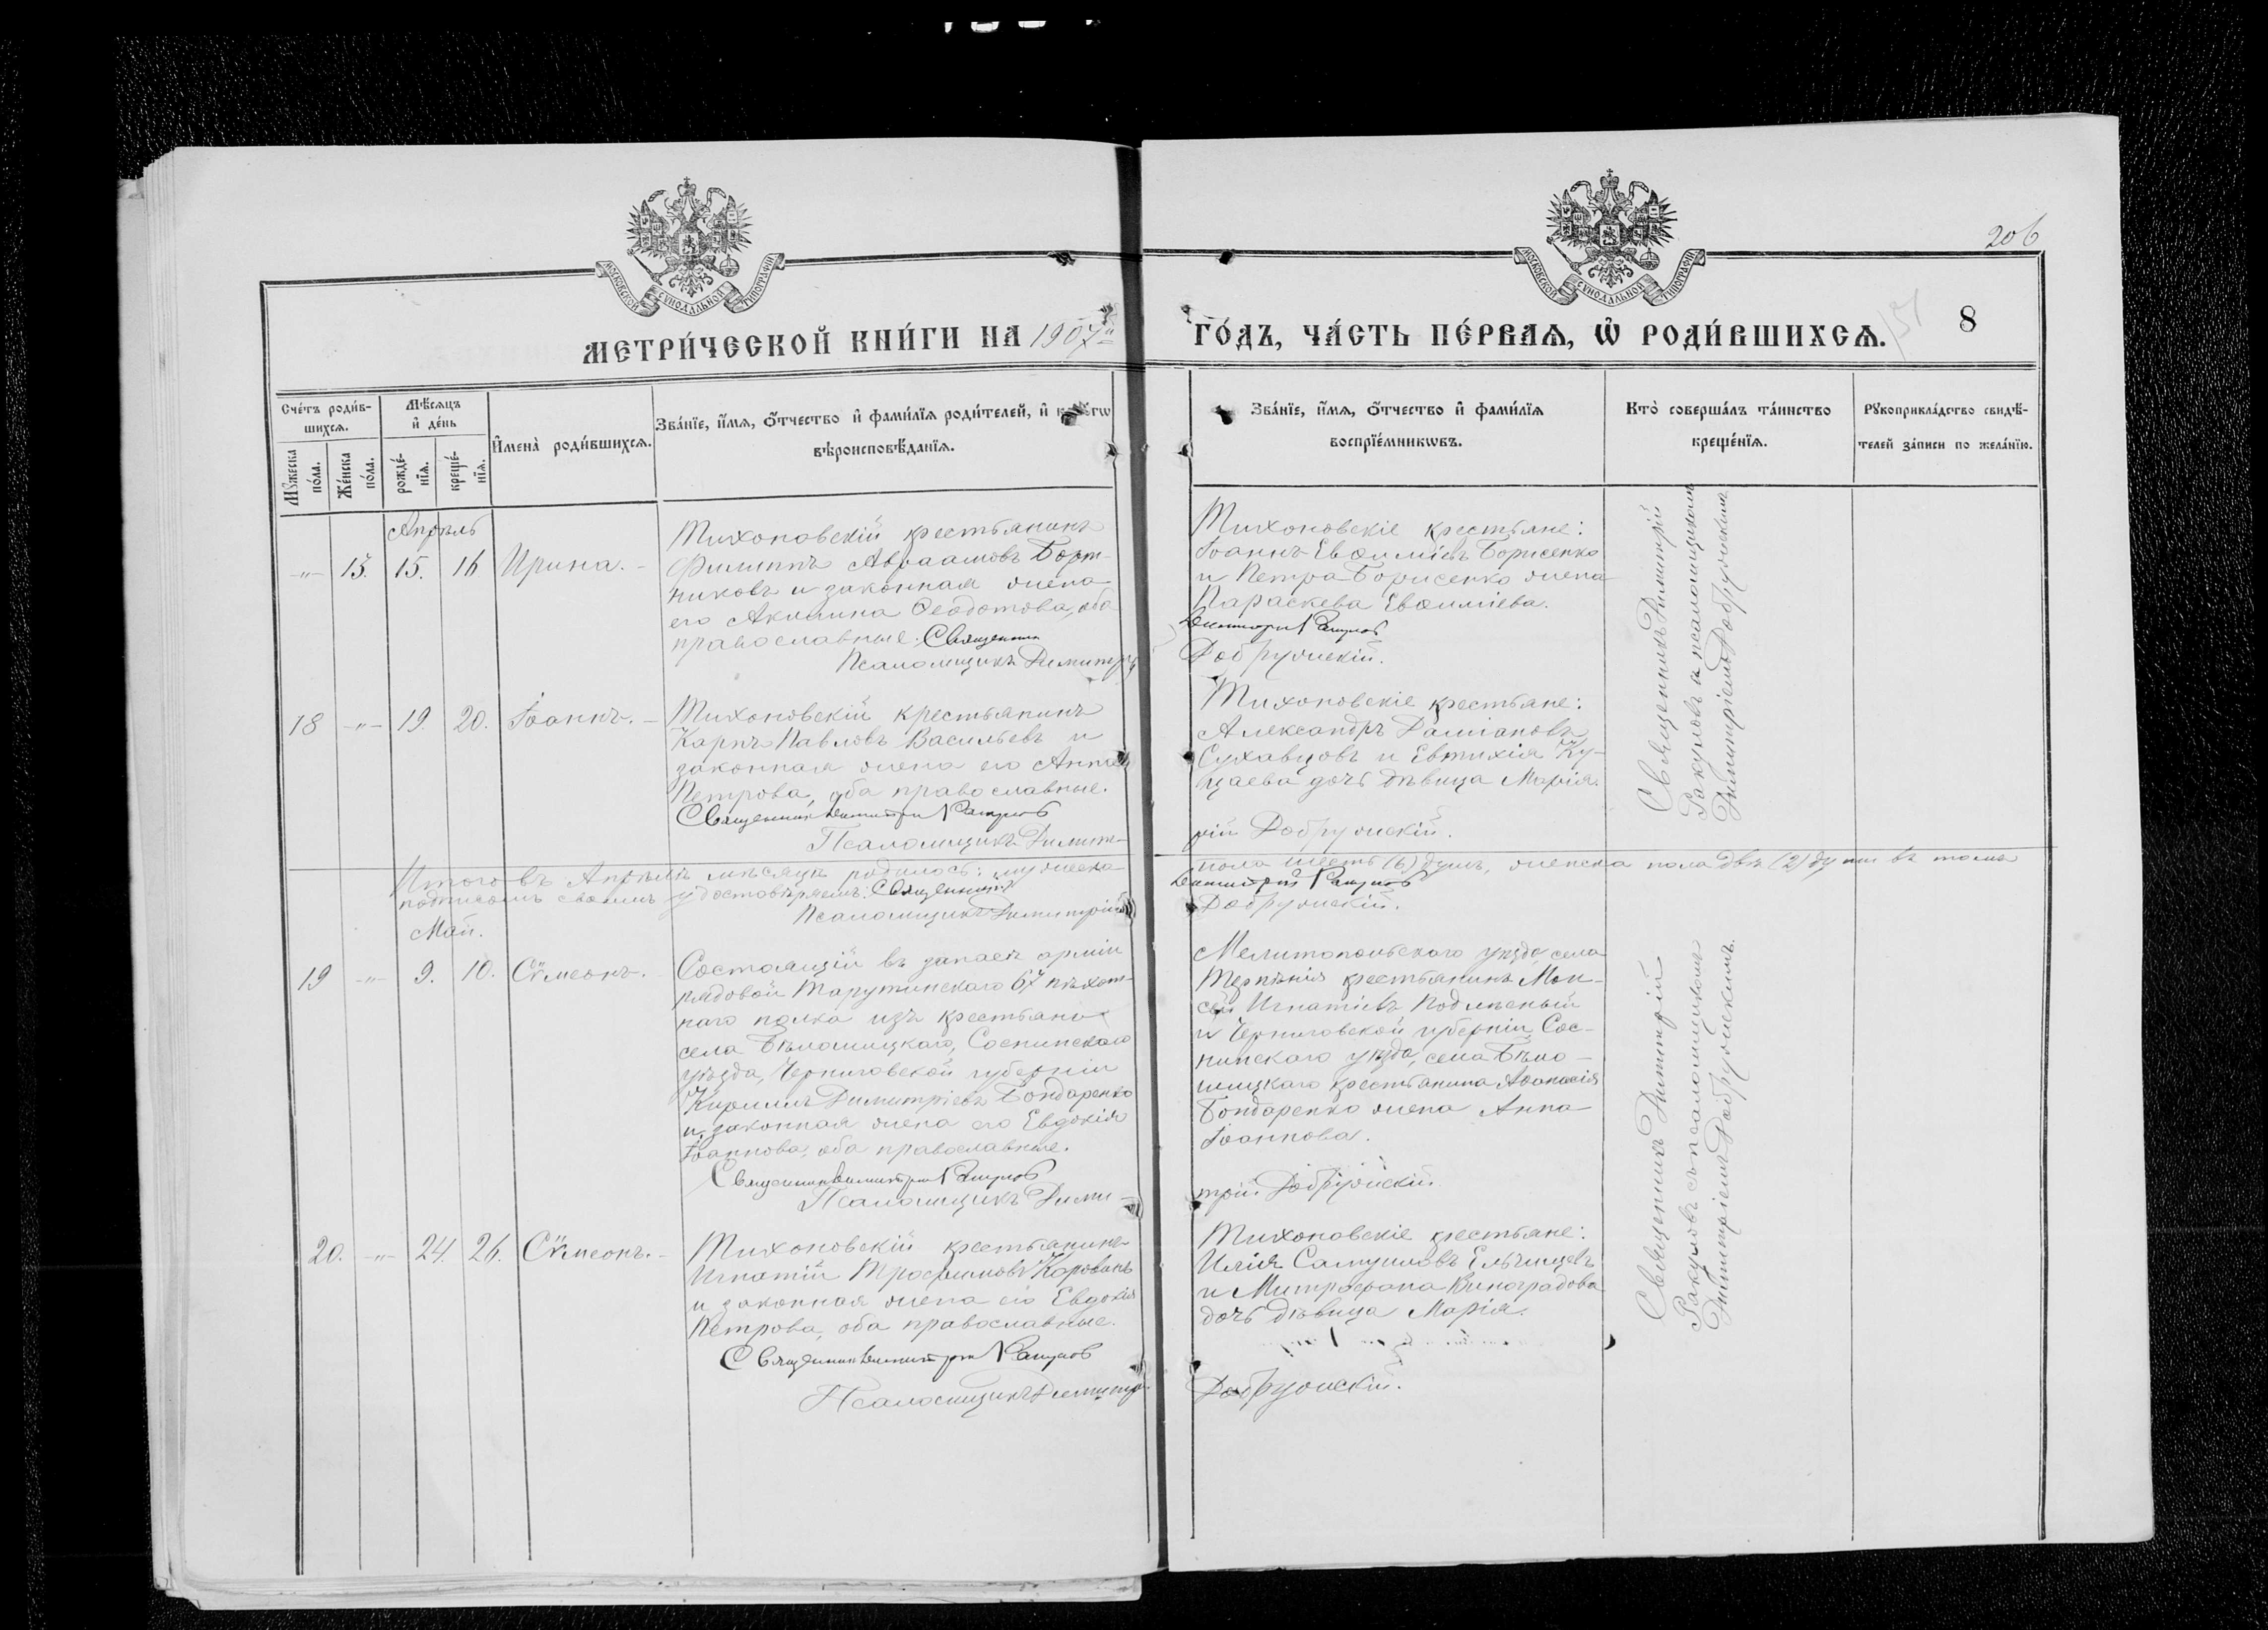 МОСКОВСКОЙ СѴНОДАЛЬНОЙ ТИПОГРАФІИ
МОСКОВСКОЙ СѴНОДАЛЬНОЙ ТИПОГРАФІИ
206
МЕТРИ́ЧЕСКОЙ КНИ́ГИ НА 1907й
ГО́ДЪ, ЧА́СТЬ ПЕ́РВАѦ, Ѡ҆ РОДИ́ВШИХСѦ.
151
8
Сче́тъ роди́в-
шихсѧ.
Мꙋ́жеска по́ла.
Же́нска по́ла.
Мѣ́сѧцъ
и҆ де́нь
рожде́-
нїѧ.
креще́-
нїѧ.
И҆мена̀ роди́вшихсѧ.
Зва́нїе, и҆́мѧ, ѻ҆́тчество и҆ фами́лїѧ роди́телей, и҆
вѣроисповѣ́данїѧ.
Зва́нїе, и҆́мѧ, ѻ҆́тчество и҆ фами́лїѧ
воспрїе́мникѡвъ.
Кто̀ соверша́лъ та́инство
креще́нїѧ.
Рꙋкоприкла́дство свидѣ́-
телей за́писи по жела́нїю.
Апрѣль
-"- 13. 15. 16 Ирина.
Тихоновскій крестьянинъ
Филиппъ Авраамовъ Борт-
никовъ и законная жена
его Акилина Ѳеодотова, оба
православные. Священник
Псаломщикъ Димитрій
Тихоновскіе крестьяне:
Іоаннъ Евѳиміевъ Борисенко
и Петра Борисенко жена
Параскева Евѳиміева.
Димитрий Ракулов
Добружскій.
Священникъ Димитрій
Ракуловъ и псаломщикомъ
Димитріемъ Добружскимъ
18 -"- 19. 20. Іоаннъ.
Тихоновскій крестьянинъ
Карпъ Павловъ Васильевъ и
законная жена его Анна
Петрова, оба православные.
Священник Димитрий Ракулов
Псаломщикъ Димит-
Тихоновскіе крестьяне:
Александръ Даміановъ
Сухавцовъ и Евтихія Ку-
цаева дочь дѣвица Марія.
рій Добружскій.
Итого въ Апрѣлѣ мѣсяцѣ родилось: мужеска
пола шесть (6) душъ, женска пола двѣ (2) души въ томъ
подписомъ своимъ удостовѣряемъ: Священникъ
Димитрий Ракулов
Псаломщикъ Димитрій
Добружскій.
Май.
19 -"- 9. 10. Сѵмеонъ.
Состоящій въ запасѣ арміи
рядовой Тарутинскаго 67 пѣхот-
наго полка изъ крестьянъ
села Бѣлошицкаго, Соснинскаго
уѣзда, Черниговской губерніи
Кириллъ Димитріевъ Бондаренко
и законная жена его Евдокія
Іоаннова, оба православные.
Священник Димитрий Ракулов
Псаломщикъ Дими-
Мелитопольскаго уѣзда, села
Терпѣнія крестьянинъ Мои-
сей Игнатіевъ Подлѣсный
и Черниговской губерніи Сос-
нинскаго уѣзда, села Бѣло-
шицкаго крестьянина Аѳанасія
Бондаренко жена Анна
Іоаннова.
трій Добружскій
Священникъ Димитрій
Ракуловъ съ псаломщикомъ
Димитріемъ Добружскимъ.
20. -"- 24. 26. Сѵмеонъ.
Тихоновскій крестьянинъ
Игнатій Трофимовъ Карованъ
и законная жена его Евдокія
Петрова, оба православные.
Священник Димитрий Ракулов
Псаломщикъ Димитр.
Тихоновскіе крестьяне:
Илія Самуиловъ Ельчищевъ
и Митрофана Виноградова
дочь дѣвица Марія.
Добружскій.